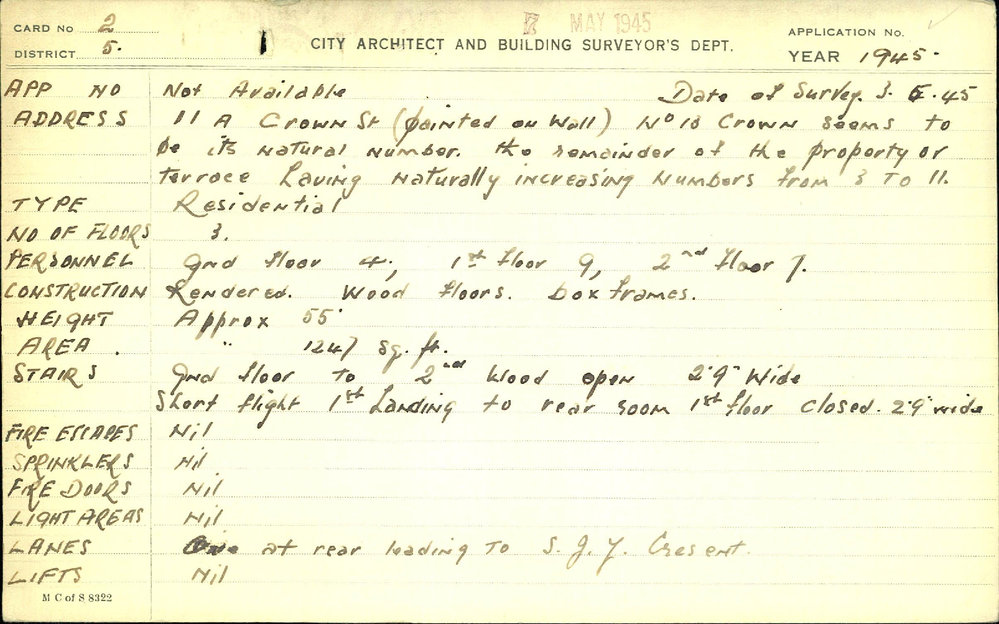 CARD No 2
7 MAY 1945
APPLICATION No.
DISTRICT 5.
CITY ARCHITECT AND BUILDING SURVEYOR'S DEPT.
YEAR 1945
APP NO Not Available Date of Survey. 3. 5. 45
ADDRESS 11 A Crown St (painted on Wall) No 13 Crown seems to
be its natural number. the remainder of the property or
terrace having naturally increasing numbers from 3 to 11.
TYPE Residential
NO OF FLOORS 3.
PERSONNEL Gnd floor 4, 1st floor 9, 2nd floor 7.
CONSTRUCTION Rendered. Wood floors. box frames.
HEIGHT Approx 55'
AREA. " 1247 sq. ft.
STAIRS Gnd floor to 2nd Wood open 2'9" Wide
Short flight 1st Landing to rear room 1st floor closed. 2'9" wide
FIRE ESCAPES Nil
SPRINKLERS Nil
FIRE DOORS Nil
LIGHT AREAS Nil
LANES One at rear leading to S. J. Y. Cresent.
LIFTS Nil
M C of S 8322